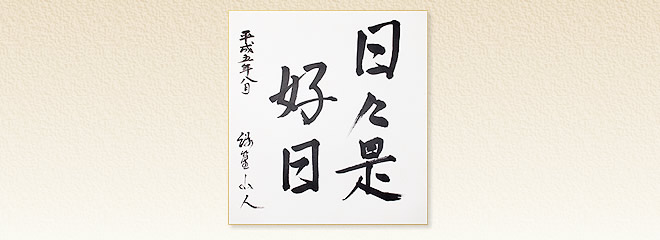 日々是
好日
平成五年八月